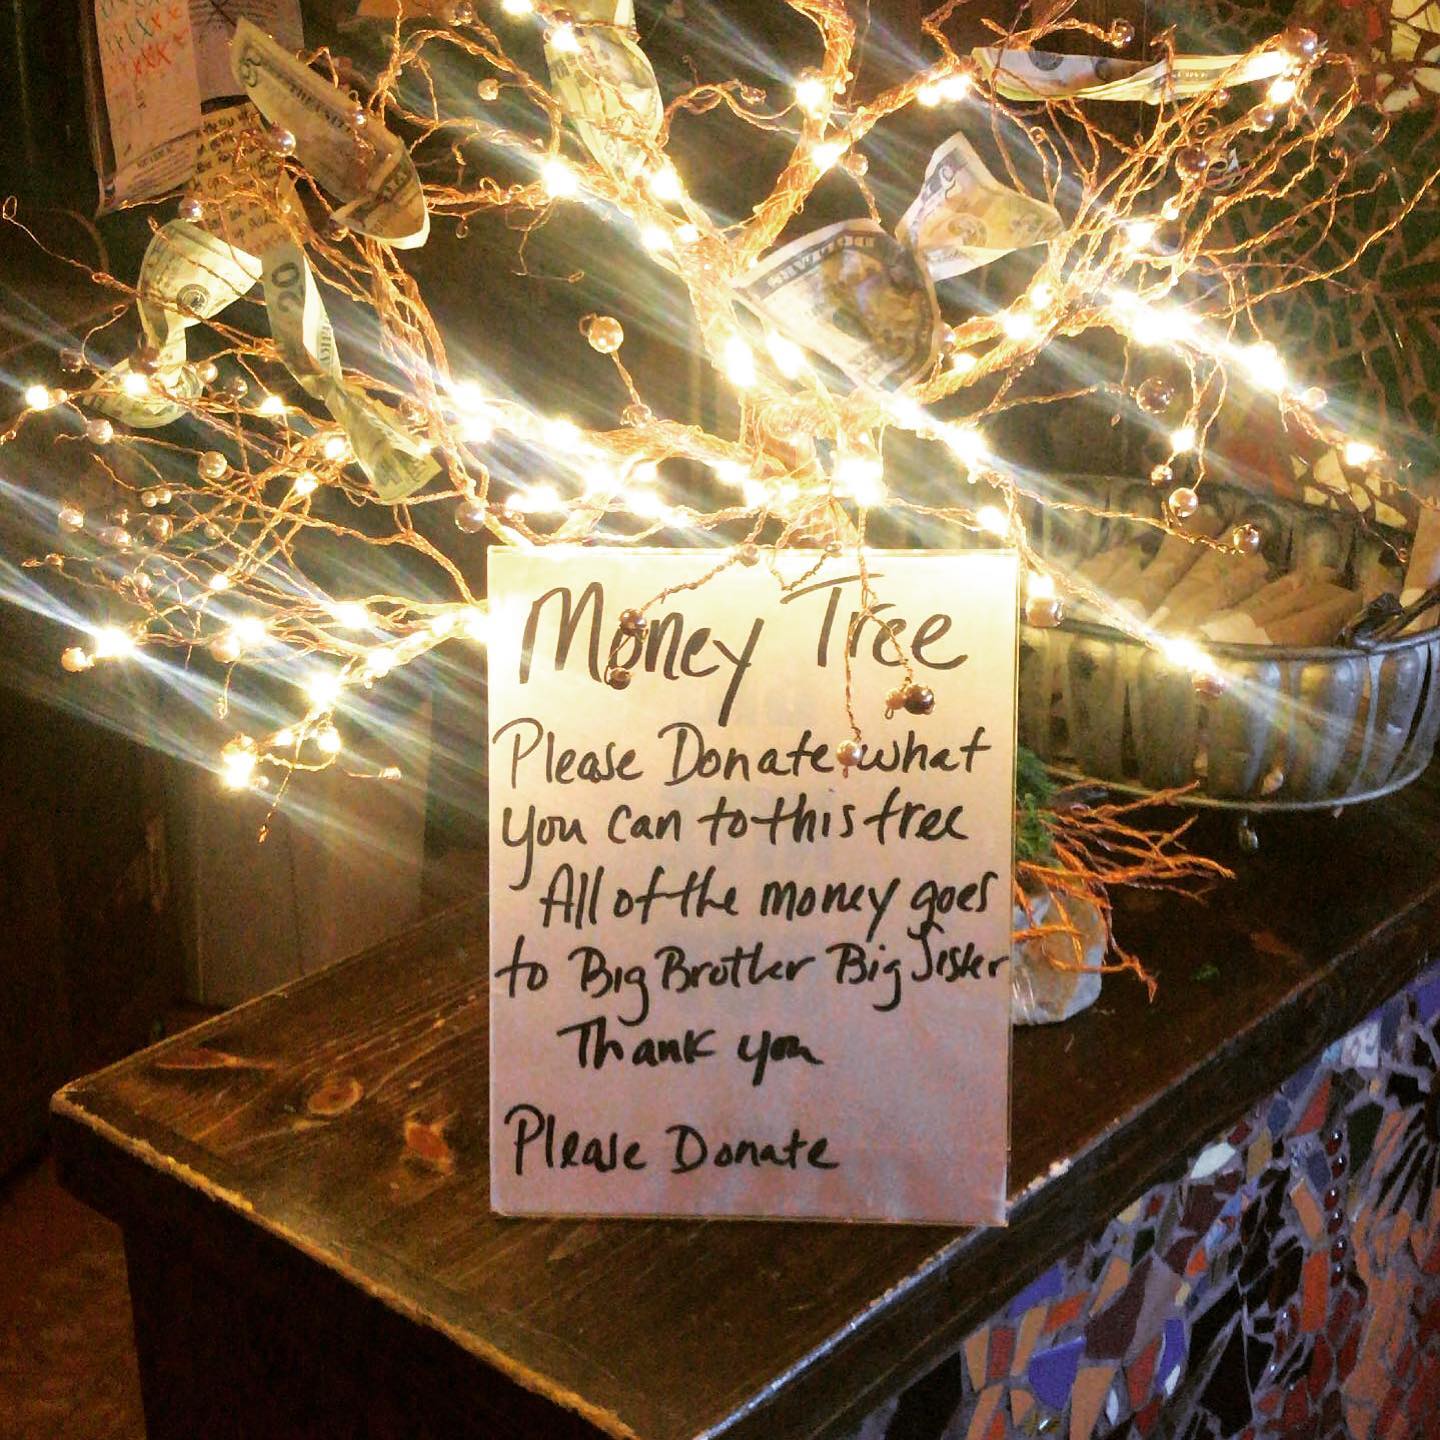 20
Money Tree
Please Donate what
you can to this tree
All of the money goes
to Big Brother Big Sister
Thank you
Please Donate